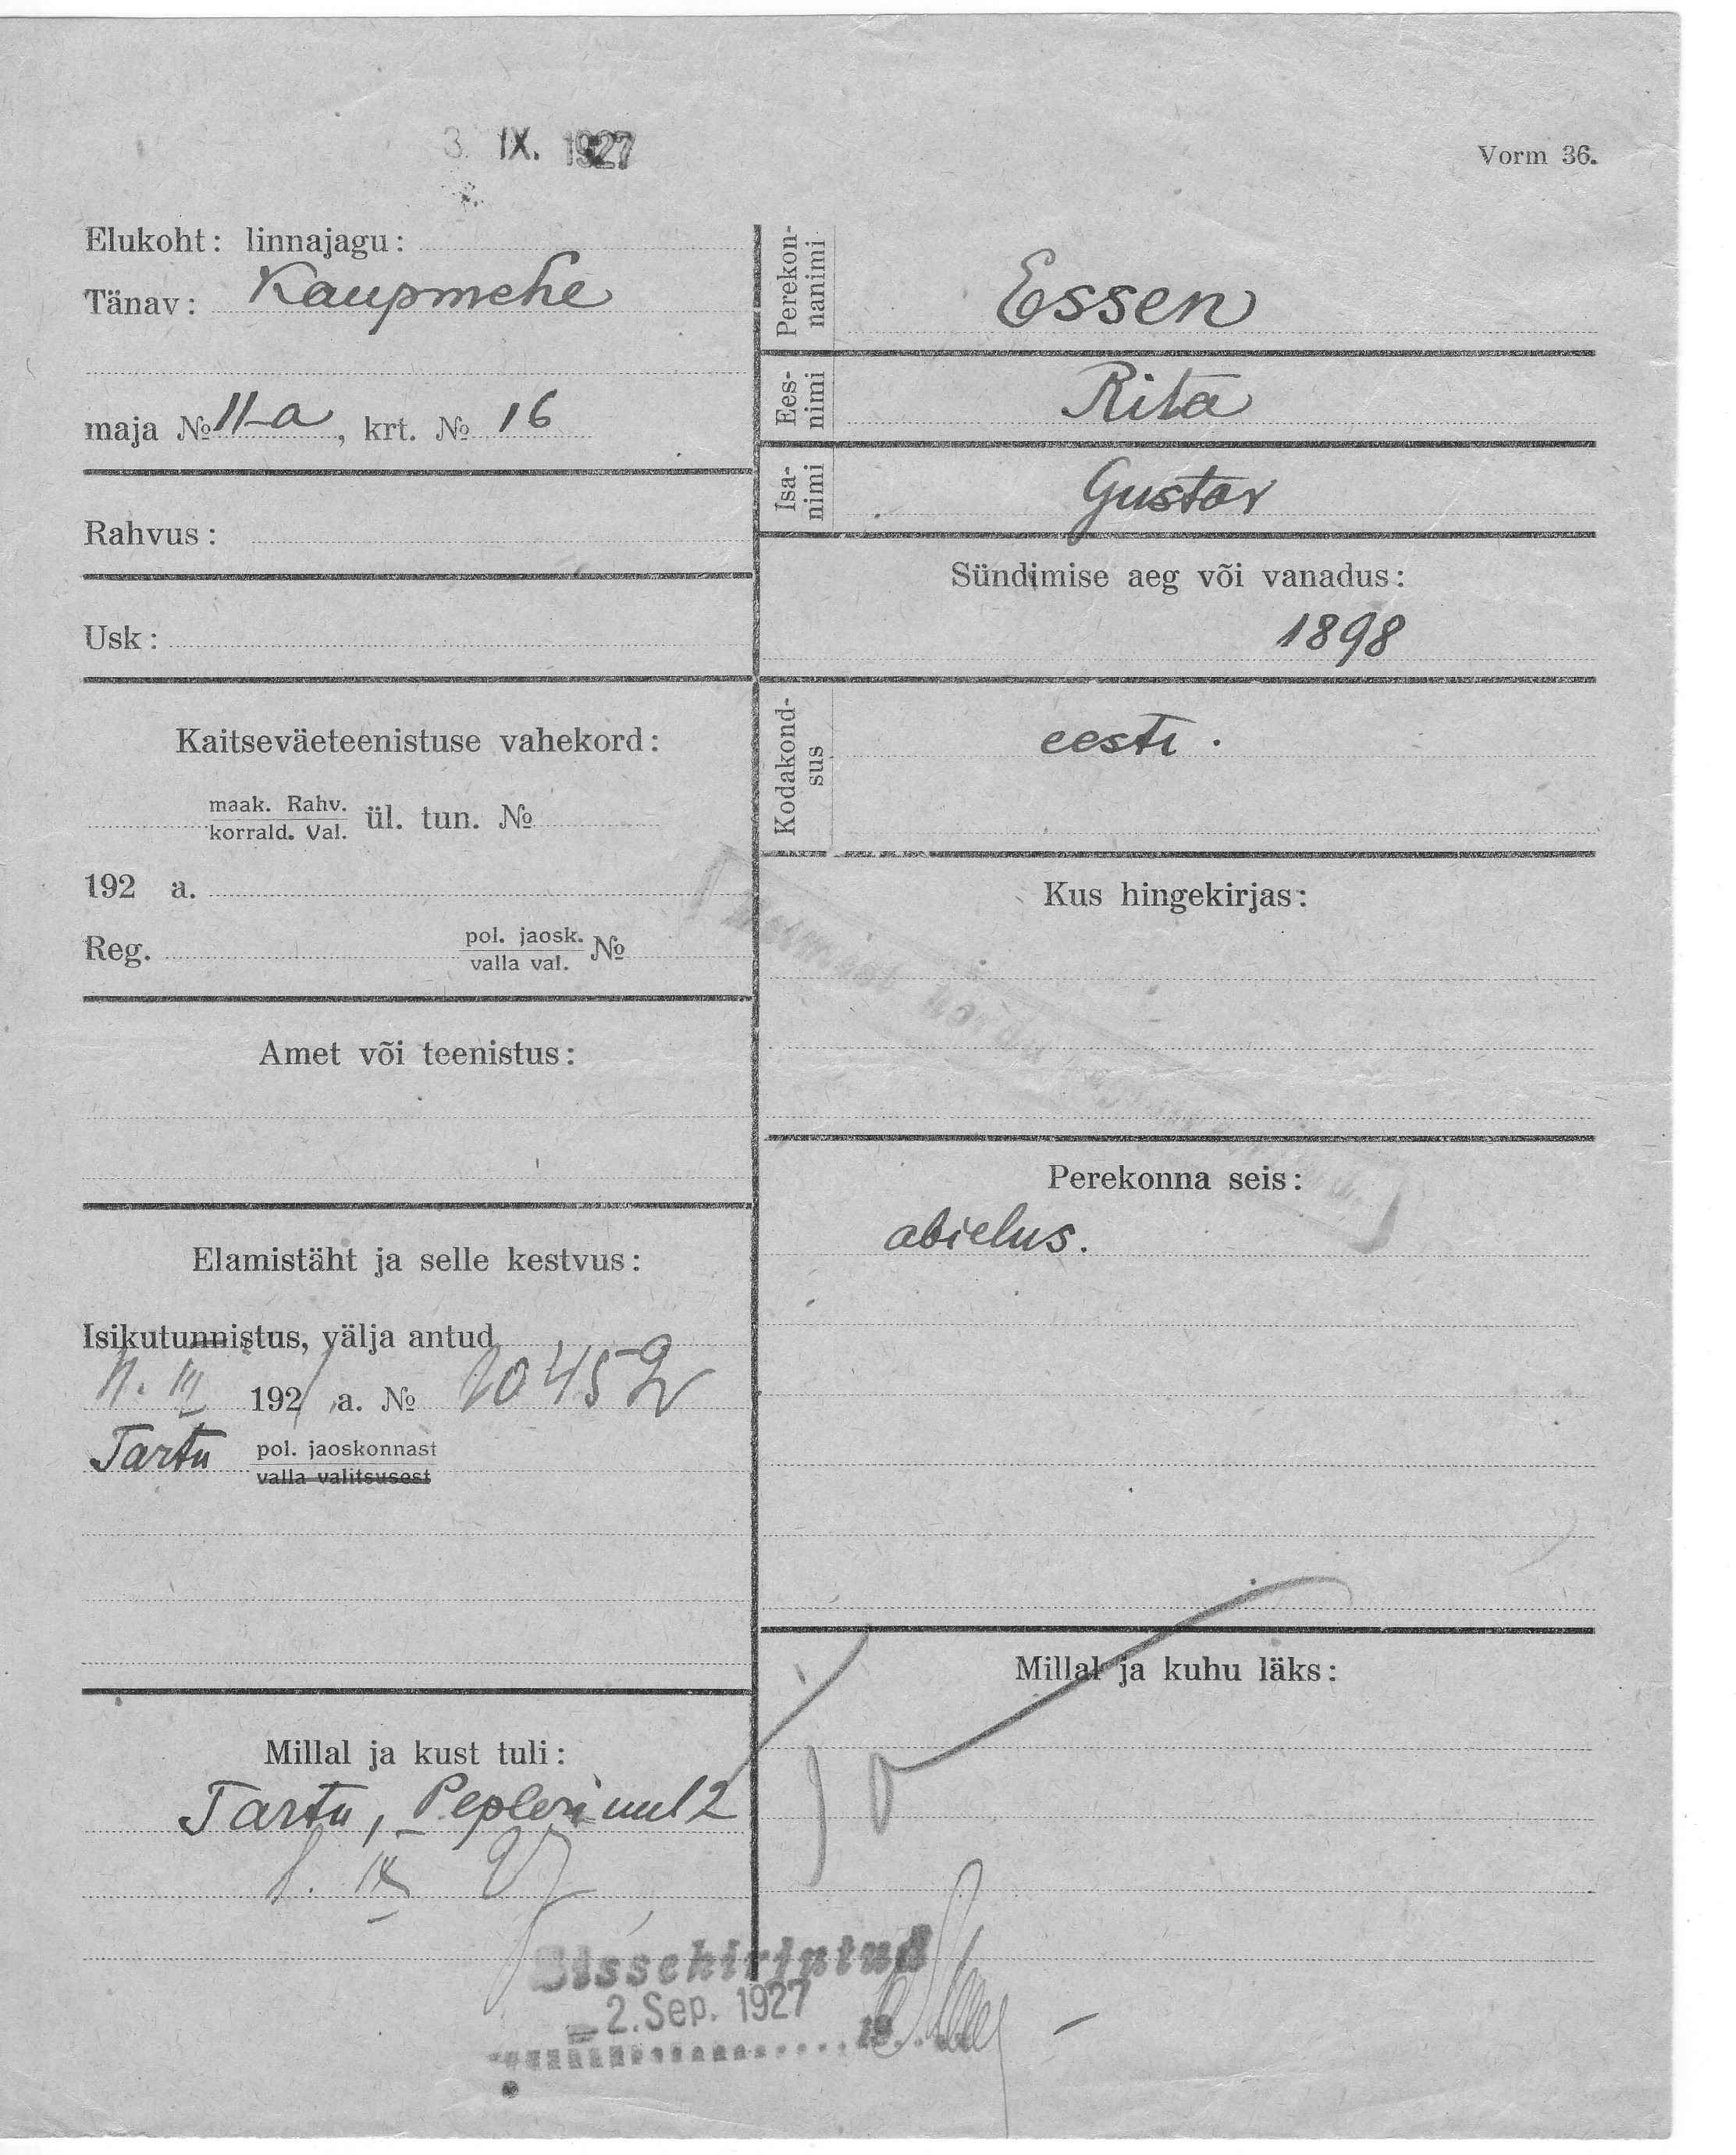 3. IX. 1927
Vorm 36.
Elukoht: linnajagu:
Tänav: Kaupmehe
maja № 11-a, krt. № 16
Rahvus:
Usk:
Kaitseväeteenistuse vahekord:
maak. Rahv.
korrald. Val. ül. tun. №
192 a.
Reg. pol. jaosk.
valla val. №
Amet või teenistus:
Elamistäht ja selle kestvus:
Isikutunnistus, välja antud
192 a. №
Tartu pol. jaoskonnast
valla valitsusest
Millal ja kust tuli:
Tartu, Pepleri
IX 27
Perekon-
nanimi
Essen
Ees-
nimi
Rita
Isa-
nimi
Gustav
Sündimise aeg või vanadus:
1898
Kodakond-
sus
eesti.
Kus hingekirjas:
Perekonna seis:
abielus.
Millal ja kuhu läks:
Sissekirjutud
2. Sep. 1927
19